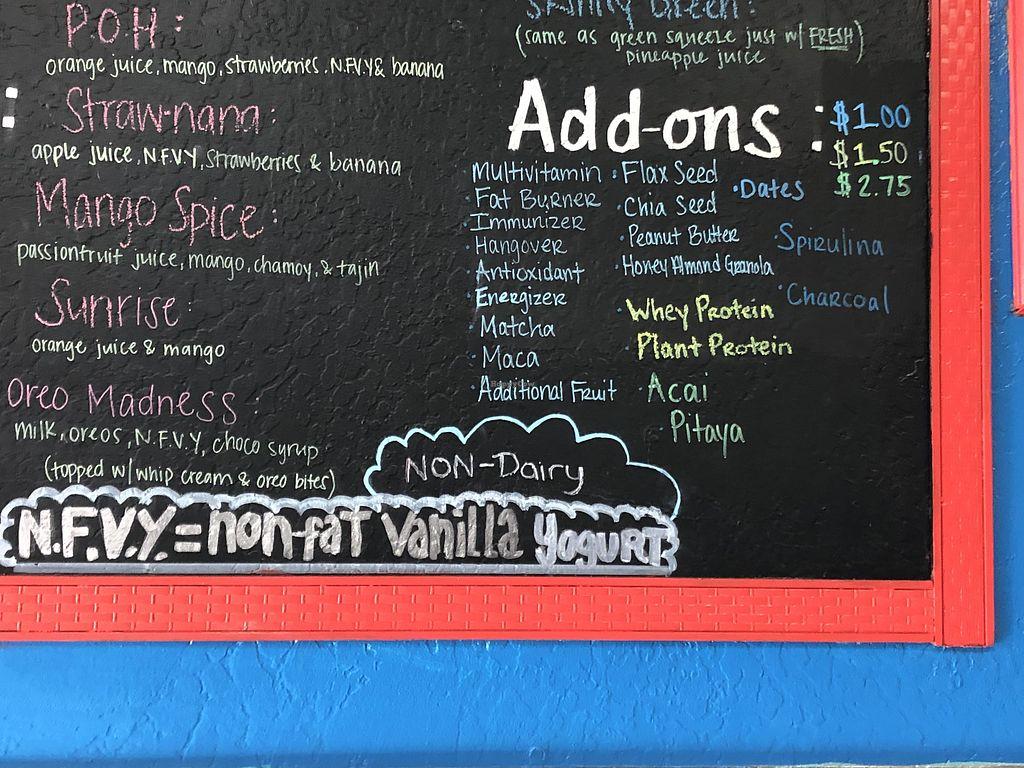 P.O.H:
orange juice, mango, strawberries, N.F.V.Y & banana
Straw-nana:
apple juice, N.F.V.Y, strawberries & banana
Mango Spice:
passionfruit juice, mango, chamoy, & tajin
Sunrise:
orange juice & mango
Oreo Madness:
milk, oreos, N.F.V.Y, choco syrup
(topped w/ whip cream & oreo bites)
Skinny Green:
(same as green squeeze just w/ FRESH)
pineapple juice
Add-ons:
$1.00
$1.50
$2.75
Multivitamin
· Fat Burner
· Immunizer
· Hangover
· Antioxidant
· Energizer
· Matcha
· Maca
· Additional Fruit
· Flax Seed
· Chia Seed
· Peanut Butter
· Honey Almond Granola
· Whey Protein
· Plant Protein
· Acai
· Pitaya
· Dates
Spirulina
· Charcoal
NON-Dairy
N.F.V.Y. = non-fat vanilla yogurt